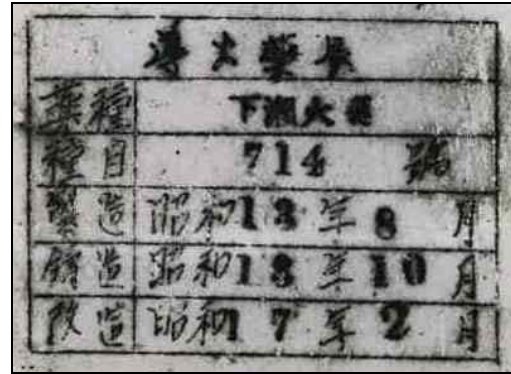 導火藥
藥種 下瀬火薬
種目 714 號
製造 昭和13年8月
鋳造 昭和13年10月
改造 昭和17年2月